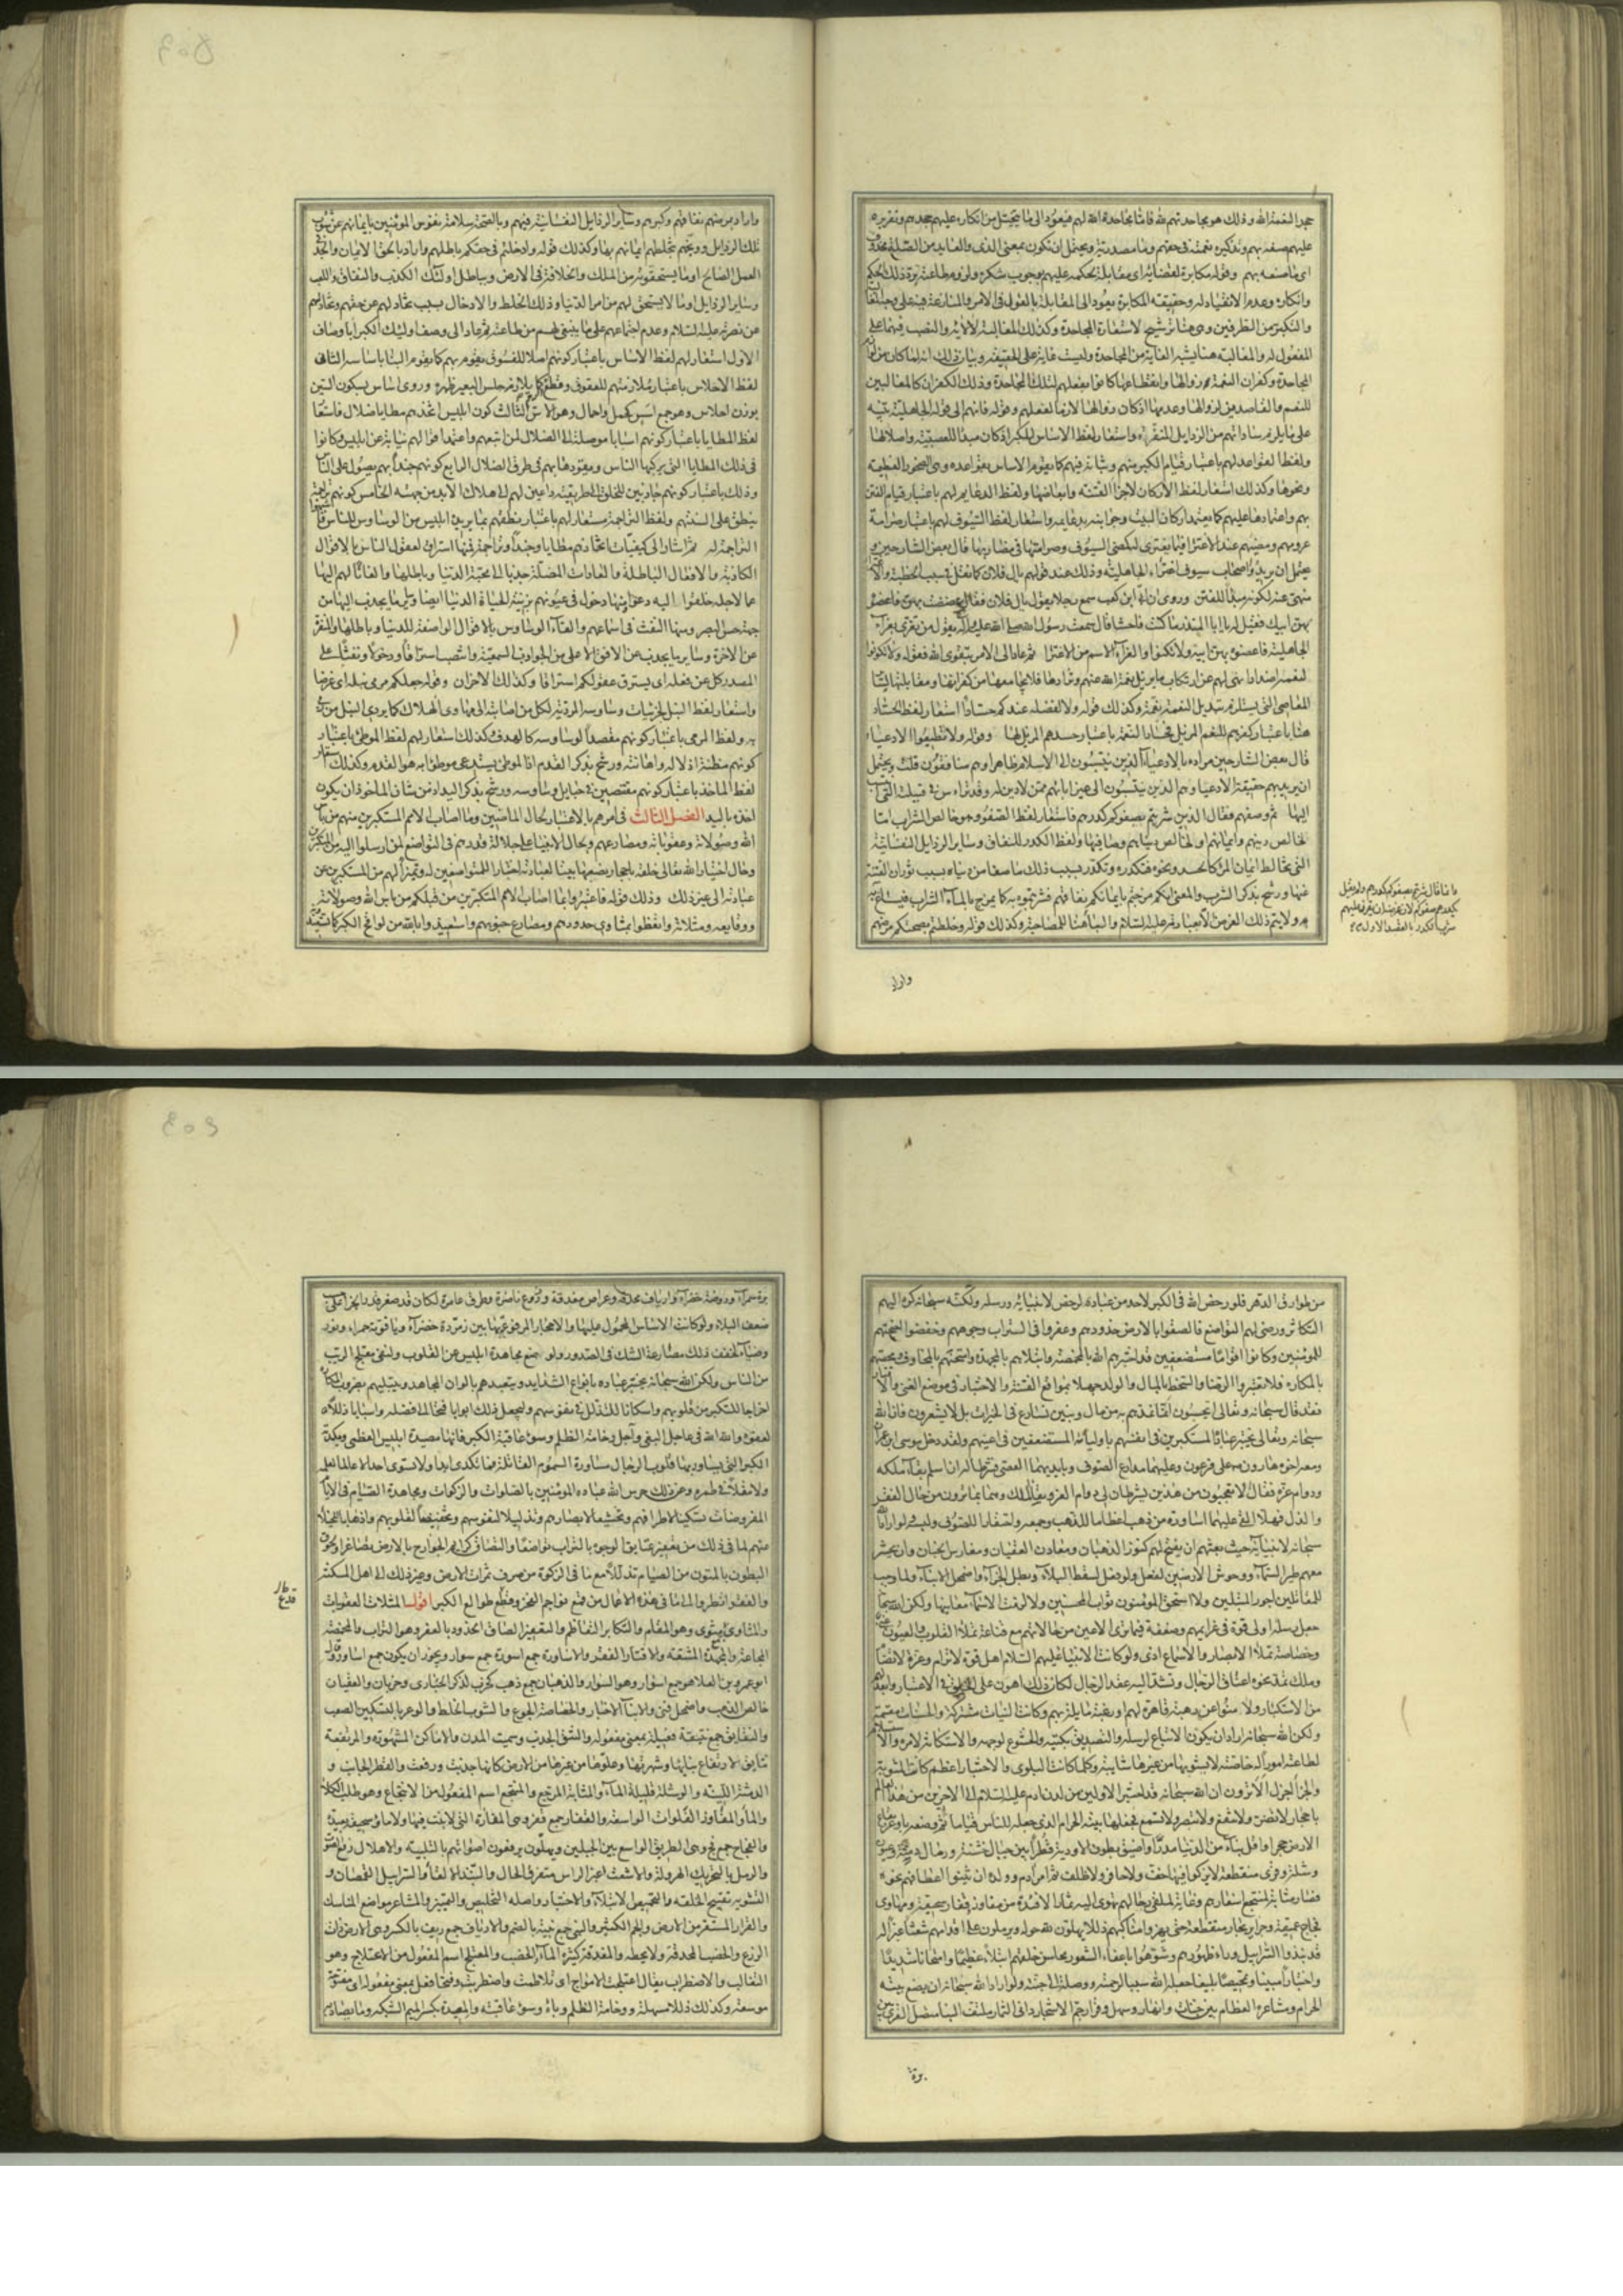 جحدا لنعمة الله وذلك هو مجاحدتهم لله فاما مجاحدة الله لهم فيعود الى ما يتخيل من انكاره عليهم جحدهم وتقريره
عليهم صنعه بهم وتذكيره نعمته في حقهم وما مصدرية ويحتمل ان تكون بمعنى الذي والعايد من الصلة محذوف
اى ما صنعه بهم وقوله مكابرة لقضائه اى مقابلة لحكمه عليهم بوجوب شكره ولزوم طاعته برد ذلك الحكم
وانكاره وعدم الانقياد له وحقيقة المكابرة يعود الى المقابلة بالقول في الامر والمنازعة فيه على وجه
والتكبر من الطرفين وهي هنا ترشيح لاستعارة المجاحدة وكذلك المغالبة لآلائه والنصب فيهما على
المفعول له والمغالبة هنا يشبه الغاية من المجاحدة وليست غاية على الحقيقة وبيان ذلك انه لما كان من لوازم
المجاحدة وكفران النعمة زوالها وانقطاعها كانوا بفعلهم لتلك المجاحدة وذلك الكفران كالمغالبين
للنعم والقاصدين لزوالها وعدمها اذ كان زوالها لازما لفعلهم وقوله فانهم الى قوله الجاهلية تنبيه
على ما يلزم ساداتهم من الرذايل المنفرة واستعار لفظ الاساس للكبر اذ كان مبدأ للعصبية واصلا لها
ولفظ القواعد لهم باعتبار قيام الكبر بهم وثباته فيهم كما يقوم الاساس بقواعده وهي الصخور العظيمة
ونحوها وكذلك استعار لفظ الاركان لاجزاء الفتنة وابعاضها ولفظ الدعايم لهم باعتبار قيام الفتن
بهم واعتمادها عليهم كما يعتمد اركان البيت وجوانبه بدعايمه واستعار لفظ السيوف لهم باعتبار صرامة
عزومهم ومضيهم عند الاعتزاء فيما يعتزى له كمضى السيوف وصرامتها في مضاربها قال بعض الشارحين و
يحتمل ان يريد واصحاب سيوف اعتزاء الجاهلية وذلك عند قولهم يال فلان كما نقل في سبب الخطبة
منهى عنه لكونه مبدأ للفتن وروى ان ابى بن كعب سمع رجلا يقول يال فلان فقال
بهن ابيك فقيل له يا ابا المنذر ما كنت فاحشا قال سمعت رسول الله صلى الله عليه وآله يقول من تعزى بعزاء
الجاهلية فاعضوه بهن ابيه ولا تكنوا والعزآء الاسم من الاعتزاء ثم عاد الى الامر بتقوى الله فقوله ولا تكونوا
لنعمه اضدادا نهى لهم عن ارتكاب ما يزيل نعم الله عنهم
المعاصى التى يستلزم تبديل النعمة نقمة وكذلك قوله ولا لفضله عندكم حسادا استعار لفظ الحساد
هنا باعتبار كفرهم للنعم المزيل لها باعتبار حسدهم المزيل لها وقوله ولا تطيعوا الادعياء
قال بعض الشارحين مراده بالادعياء الذين ينتسبون الى الاسلام ظاهرا وهم منافقون قلت ويحتمل
ان يريد بهم حقيقة الادعياء وهم الذين ينتسبون الى غير ابائهم ممن لا دين له وقد ساد في قبيلته
ايها ثم وصفهم فقال الذين شربتم بصفوكم كدرهم فاستعار لفظ الصفو وهو خالص الشراب اما
لخالص دينهم وايمانهم او لخالص دنياهم وصافيها ولفظ الكدر للنفاق وساير الرذايل النفسانية
التى تخالط ايمان المرء كالحسد ونحوه فتكدره وتكدر بسبب ذلك ما صفا من دنياه بسبب ثوران الفتنة
عنها ورشح بذكر الشرب والمعنى انكم مزجتم بايمانكم نفاقهم فشربتموه به كما يمزج بالماء الشراب
ولا يتم ذلك الغرض الا وباء هنا للمصاحبة وكذلك قوله وخلطتم بصحتكم مرضهم
واراد
انما قال شربتم بصفوكم كدرهم ولم يقل
بكدرهم صفوكم لان غرضه ان يقرر عليهم
شرب الكدر بالقصد الاول
واراد بمرضهم نفاقهم وكبرهم وساير الرذايل النفسانية فيهم وبالصحة سلامة نفوس المؤمنين بايمانهم عن شوب
تلك الرذايل ووبخهم بتخليطهم ايمانهم بها وكذلك قوله وادخلتم في حقكم باطلهم واراد بالحق الايمان والجد في
العمل الصالح او ما يستحقونه من الملك والخلافة في الارض وبباطل اولئك الكذب والنفاق واللعب
وساير الرذايل او ما لا يستحق لهم من امر الدنيا وذلك الخلط والادخال بسبب تخاذلهم عن حقهم
عن نصرته عليه السلام وعدم اجتماعهم على ما ينبغي لهم من طاعته ثم عاد الى وصف اولئك الكبرآء باوصاف
الاول استعار لهم لفظ الاساس باعتبار كونهم اصلا للفسوق يقوم بهم كما يقوم البناء باساسه الثاني
لفظ الاحلاس باعتبار ملازمتهم للعقوق وقطع كما يلازم حلس البعير ظهره وروى اساس بسكون السين
بوزن احلاس وهو جمع اس كحمل واحمال وهو الاس الثالث كون ابليس اتخذهم مطايا ضلال فاستعار
لفظ المطايا باعتبار كونهم اسبابا موصلة الى الضلال لمن اتبعهم واعتمد اقوالهم نيابة عن ابليس وكانوا
فى ذلك كالمطايا التى يركبها الناس ويقودها بهم في طرق الضلال الرابع كونهم جندا بهم يصول على الناس
وذلك باعتبار كونهم جاذبين للخلق الى طريقته داعين لهم الى هلاك الابد من جهته الخامس كونهم تراجمة
ينطق على السنتهم ولفظ التراجمة مستعار لهم باعتبار نطقهم بما يريد ابليس من الوساوس للناس
التراجمة له ثم اشار الى كيفيات اتخاذهم مطايا وجندا وتراجمة فمنها استراق لعقول الناس بالاقوال
الكاذبة والافعال الباطلة والعادات المضلة جذبا الى محبة الدنيا وباطلها والفاتا لهم اليها
عما لاجله خلقوا اليه دعوا ومنها دخول في عيونهم بزينة الحياة الدنيا ايضا وساير ما يجذب اليها من
جهة حس البصر ومنها النفث في اسماعهم والقاء الوساوس بالاقوال الواصفة للدنيا وباطلها والمنفرة
عن الاخرة وساير ما يجذب عن الافق الاعلى من الجواذب السمعية وانتصب استراقا ودخولا ونفثا على
المصدر كل عن فعله اى يسترق عقولكم استراقا وكذلك الاخران وقوله جعلكم مرمى نبله اى غرضا
واستعار لفظ النبل لجزئيات وساوسه المردية لكل من اصابته الى مهاوى الهلاك كما يردى النبل من رمى
به ولفظ المرمى باعتبار كونهم مقصدا لوساوسه كالهدف وكذلك استعار لهم لفظ الموطئ باعتبار
كونهم مظنة اذلاله واهانته ورشح بذكر القدم اذ الموطئ يستدعى موطوئا به هو القدم وكذلك استعار
لفظ الماخذ باعتبار كونهم مقتنصين في حبايل وساوسه ورشح بذكر اليد اذ من شان الماخوذ ان يكون
اخذه باليد الفصل الثالث في امرهم بالاعتبار بحال الماضين وما اصاب الامم المستكبرين منهم من باس
الله وصولاته وعقوباته ومصارعهم وبحال الانبياء على جلالة قدرهم في التواضع لمن ارسلوا اليه من
وحال اختبار الله تعالى خلقه باحجار نصبها بيتا لعبادته اختبار المتواضعين له وتمييزا لهم من المستكبرين عن
عبادته الى غير ذلك وذلك قوله فاعتبروا بما اصاب الامم المتكبرين من قبلكم من باس الله وصولاته
ووقايعه ومثلاته واتعظوا بمثاوى خدودهم ومصارع جنوبهم واستعيذوا بالله من لواقح الكبر كما تستعيذونه
من طوارق الدهر فلو رخص الله في الكبر لاحد من عباده لرخص لانبيائه ورسله ولكنه سبحانه كره اليهم
التكابر ورضى لهم التواضع فالصقوا بالارض خدودهم وعفروا في التراب وجوههم وخفضوا اجنحتهم
للمؤمنين وكانوا اقواما مستضعفين قد اختبرهم الله بالمخمصة وابتلاهم بالمجهدة وامتحنهم بالمخاوف ومحصهم
بالمكاره فلا تعتبروا الرضا والسخط بالمال والولد جهلا بمواقع الفتنة والاختبار في موضع الغنى
فقد قال سبحانه وتعالى ايحسبون ان ما نمدهم به من مال وبنين نسارع لهم في الخيرات بل لا يشعرون فان الله
سبحانه وتعالى يختبر عباده المستكبرين في انفسهم باوليائه المستضعفين في اعينهم ولقد دخل موسى ابن عمران
ومعه اخوه هارون على فرعون وعليهما مدارع الصوف وبايديهما العصى فشرطا له ان اسلم بقاء ملكه
ودوام عزه فقال الا تعجبون من هذين يشرطان لى دوام العز وبقاء الملك وهما بما ترون من حال الفقر
والذل فهلا القى عليهما اساورة من ذهب اعظاما للذهب وجمعه واحتقارا للصوف ولبسه ولو اراد الله
سبحانه لانبيائه حيث بعثهم ان يفتح لهم كنوز الذهبان ومعادن العقيان ومغارس الجنان وان يحشر
معهم طير السماء ووحوش الارضين لفعل ولو فعل لسقط البلاء وبطل الجزاء واضمحل الانباء ولما وجب
للقائلين اجور المبتلين ولا استحق المؤمنون ثواب المحسنين ولا لزمت الاسماء معانيها ولكن الله سبحانه
جعل رسله اولى قوة في عزائمهم وضعفة فيما ترى الاعين من حالاتهم مع قناعة تملا القلوب والعيون
وخصاصة تملا الابصار والاسماع اذى ولو كانت الانبياء عليهم السلام اهل قوة لا ترام وعزة لا تضام
وملك تمد نحوه اعناق الرجال وتشد اليه عقد الرحال لكان ذلك اهون على الخلق في الاعتبار وابعد
من الاستكبار ولامنوا عن رهبة قاهرة لهم او رغبة مايلة بهم وكانت النيات مشتركة والحسنات مقتسمة
ولكن الله سبحانه اراد ان يكون الاتباع لرسله والتصديق بكتبه والخشوع لوجهه والاستكانة لامره والاستسلام
لطاعته امورا له خاصة لا يشوبها من غيرها شايبة وكلما كانت البلوى والاختبار اعظم كانت المثوبة
والجزاء اجزل الا ترون ان الله سبحانه قد اختبر الاولين من لدن ادم عليه السلام الى الاخرين من هذا العالم
باحجار لا تضر ولا تنفع ولا تبصر ولا تسمع فجعلها بيته الحرام الذى جعله للناس قياما ثم وضعه باوعر بقاع
الارض حجرا واقل نتائق الدنيا مدرا واضيق بطون الاودية قطرا بين جبال خشنة ورمال دمثة وعيون
وشلة وقرى منقطعة لا يزكو بها خف ولا حافر ولا ظلف ثم امر ادم وولده ان يثنوا اعطافهم نحوه
فصار مثابة لمنتجع اسفارهم وغاية لملقى رحالهم تهوى اليه ثمار الافئدة من مفاوز قفار سحيقة ومهاوى
فجاج عميقة وجزاير بحار منقطعة حتى يهزوا مناكبهم ذللا يهلون لله حوله ويرملون على اقدامهم شعثا غبرا له
قد نبذوا السرابيل وراء ظهورهم وشوهوا باعفاء الشعور محاسن خلقهم ابتلاء عظيما وامتحانا شديدا
واختبارا مبينا وتمحيصا بليغا جعله الله سببا لرحمته ووصلة الى جنته ولو اراد الله سبحانه ان يضع بيته
الحرام ومشاعره العظام بين جنات وانهار وسهل وقرار جم الاشجار دانى الثمار ملتف البنا متصل القرى بين
برة
برة سمراء وروضة خضراء وارياف محدقة وعراص مغدقة وزروع ناضرة وطرق عامرة لكان قد صغر قدر الجزاء على حسب
ضعف البلاء ولو كانت الاساس المحمول عليها والاحجار المرفوع بها بين زمردة خضراء وياقوتة حمراء ونور
وضياء لخفف ذلك مصارعة الشك في الصدور ولوضع مجاهدة ابليس عن القلوب ولنفى معتلج الريب
من الناس ولكن الله سبحانه يختبر عباده بانواع الشدايد ويتعبدهم بالوان المجاهد ويبتليهم بضروب المكاره
اخراجا للتكبر من قلوبهم واسكانا للتذلل في نفوسهم وليجعل ذلك ابوابا فتحا الى فضله واسبابا ذللا
لعفوه والله الله في عاجل البغى وآجل وخامة الظلم وسوء عاقبة الكبر فانها مصيدة ابليس العظمى ومكيدته
الكبرى التى يساور بها قلوب الرجال مساورة السموم القاتلة فما تكدى ابدا ولا تشوى احدا لا عالما لعلمه
ولا مقلا في طمره وعن ذلك ما حرس الله عباده المؤمنين بالصلوات والزكوات ومجاهدة الصيام في الايام
المفروضات تسكينا لاطرافهم وتخشيعا لابصارهم وتذليلا لنفوسهم وتخفيضا لقلوبهم واذهابا للخيلاء
عنهم لما في ذلك من تعفير عتايق الوجوه بالتراب تواضعا والتصاق كرايم الجوارح بالارض تصاغرا ولحوق
البطون بالمتون من الصيام تذللا مع ما في الزكوة من صرف ثمرات الارض وغير ذلك الى اهل المسكنة
والفقر انظروا الى ما في هذه الافعال من قمع نواجم الفخر وقطع طوالع الكبر اقول المثلات العقوبات
والمثاوى جمع مثوى وهو المقام والتكابر التعاظم والتعفير الصاق الخدود بالعفر وهو التراب والمخمصة
المجاعة والمجهدة المشقة والاقتار الفقر والاساورة جمع اسورة جمع سوار ويجوز ان يكون جمع اساور قال
ابو عمرو بن العلاء هو جمع اسوار وهو السوار والذهبان جمع ذهب كخرب لذكر الحبارى وخربان والعقيان
خالص الذهب واضمحل فنى والانباء الاخبار والخصاصة الجوع والشوب الخلط والوعر بالتسكين الصعب
والنتايق جمع نتيقة فعيلة بمعنى مفعولة والنتق الجذب وسميت المدن والاماكن المشهورة والمرتفعة
نتايق لارتفاع بنائها وشهرتها وعلوها عن غيرها من الارض كانها جذبت ورفعت والقطر الجانب و
الدمثة اللينة والوشلة قليلة الماء والمثابة المرجع والمنتجع اسم المفعول من الانتجاع وهو طلب الكلاء
والماء والمفاوز الفلوات الواسعة والقفار جمع قفر وهى المفازة التى لا نبت فيها ولا ماء وسحيقة بعيدة
والفجاج جمع فج وهى الطريق الواسع بين الجبلين ويهلون يرفعون اصواتهم بالتلبية والاهلال رفع الصوت
والرمل بالتحريك الهرولة والاشعث اغبر الراس متفرق الحال والنبذ الالقاء والسرابيل القمصان و
التشويه تقبيح الخلقة والتمحيص الابتلاء والاختبار واصله التخليص والتمييز والمشاعر مواضع المناسك
والقرار المستقر من الارض والجم الكثير والبنى جمع بنية بالضم والارياف جمع ريف بالكسر وهى الارض ذات
الزرع والخصب والمحدقة المحيطة والمغدقة كثيرة الماء والخصب والمعتلج اسم المفعول من الاعتلاج وهو
التغالب والاضطراب يقال اعتلجت الامواج اى تلاطمت واضطربت وفتحا فعل بمعنى مفعول اى مفتوحة
موسعة وكذلك ذللا مسهلة ووخامة الظلم وباؤه وسوء عاقبته والمصيدة بكسر الميم الشبكة وما يصاد به